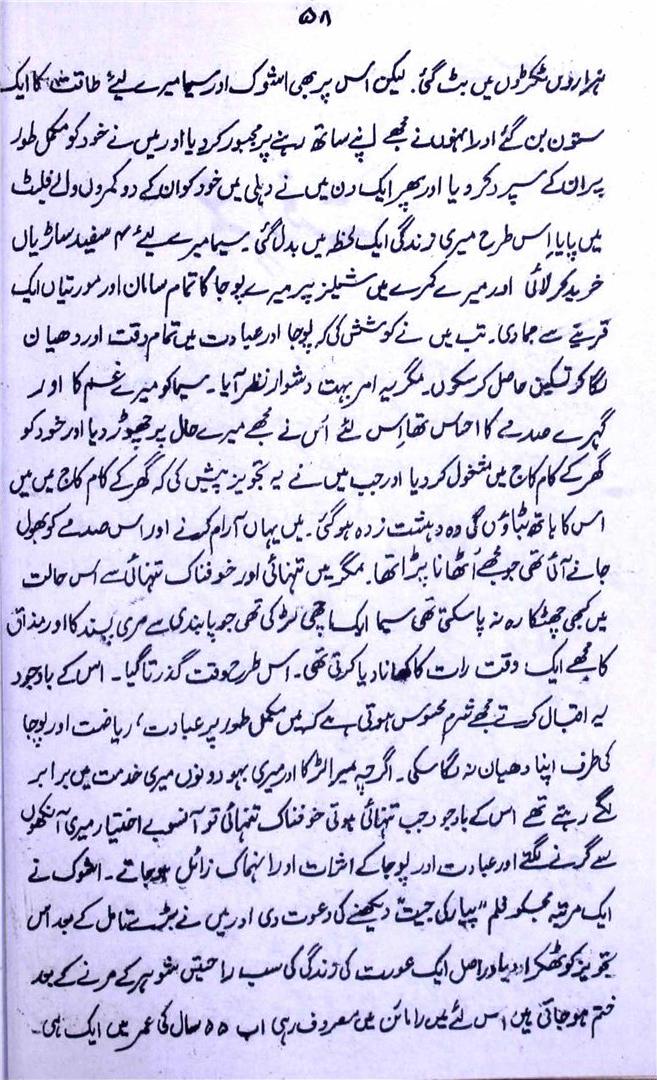 ۵۸
ہزاروں ٹکڑوں میں بٹ گئی۔ لیکن اس پر بھی اشوک اور سیما میرے لیئے طاقت کا ایک
ستون بن گئے اور انہوں نے مجھے اپنے ساتھ رہنے پر مجبور کر دیا اور میں نے خود کو مکمل طور
پر ان کے سپرد کر دیا اور پھر ایک دن میں نے دہلی میں خود کو ان کے دو کمروں والے فلیٹ
میں پایا اِس طرح میری زندگی ایک لحظہ میں بدل گئی۔ سیما میرے لیئے ۴ سفید ساڑیاں
خرید کر لائی اور میرے کمرے میں شیلز پر میرے پوجا کا تمام سامان اور مورتیاں ایک
قرینے سے جما دی۔ تب میں نے کوشش کی کہ پوجا اور عبادت میں تمام وقت اور دھیان
لگا کو تسکین حاصل کر سکوں۔ مگر یہ امر بہت دشوار نظر آیا۔ سیما کو میرے غم کا اور
گہرے صدمے کا احساس تھا اِس لئے اُس نے مجھے میرے حال پر چھوڑ دیا اور خود کو
گھر کے کام کاج میں مشغول کر دیا اور جب میں نے یہ تجویز پیش کی کہ گھر کے کام کاج میں میں
اس کا ہاتھ بٹاؤں گی وہ دہشت زدہ ہو گئی۔ میں یہاں آرام کرنے اور اس صدمے کو بھول
جانے آئی تھی جو مجھے اُٹھانا پڑا تھا۔ مگر میں تنہائی اور خوفناک تنہائی سے اس حالت
میں کبھی چھٹکارہ نہ پا سکتی تھی سیما ایک اچھی لڑکی تھی جو پابندی سے مری پسند کا اور مذاق
کا مجھے ایک وقت رات کا کھانا دیا کرتی تھی۔ اس طرح وقت گذرتا گیا۔ اس کے باوجود
یہ اقبال کرتے مجھے شرم محسوس ہوتی ہے کہ میں مکمل طور پر عبادت، ریاضت اور پوجا
کی طرف اپنا دھیان نہ لگا سکی۔ اگرچہ میرا لڑکا اور میری بہو دونوں میری خدمت میں برابر
لگے رہتے تھے اس کے باوجود جب تنہائی ہوتی خوفناک تنہائی تو آنسو بے اختیار میری آنکھوں
سے گرنے لگتے اور عبادت اور پوجا کے اثرات اور انہماک زائل ہو جاتے۔ اشوک نے
ایک مرتبہ مجھکو فلم "پیار کی جیت" دیکھنے کی دعوت دی اور میں نے بڑے تامل کے بعد اس
تجویز کو ٹھکرا دیا دراصل ایک عورت کی زندگی کی سب راحتیں شوہر کے مرنے کے بعد
ختم ہو جاتی ہیں اس لئے میں رامائن میں مصروف رہی اب ۵۵ سال کی عمر میں ایک ہی۔